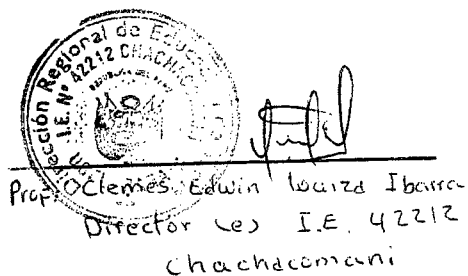 Dirección Regional de Educa
I.E. Nº 42212 CHACHAC
REPUBLICA DEL PERU
Prof. Clemes Edwin Loayza Ibarra
Director (e) I.E. 42212
Chachacomani